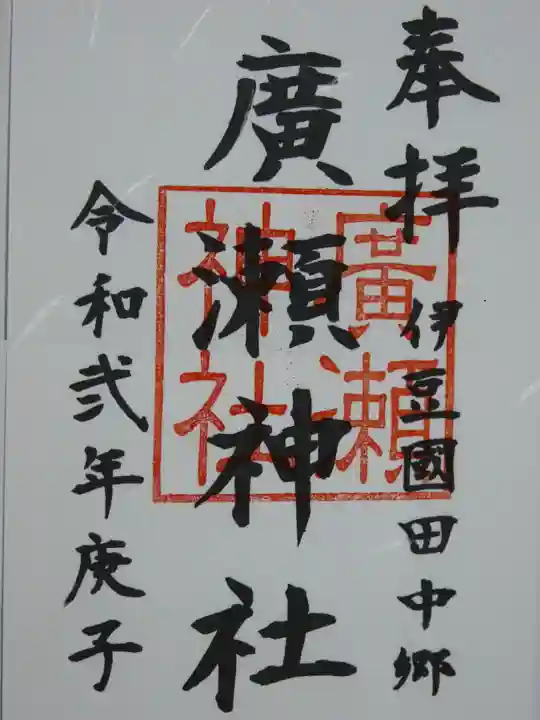 奉拝 伊豆國田中郷
廣瀬神社
令和弐年庚子
廣瀬
神社